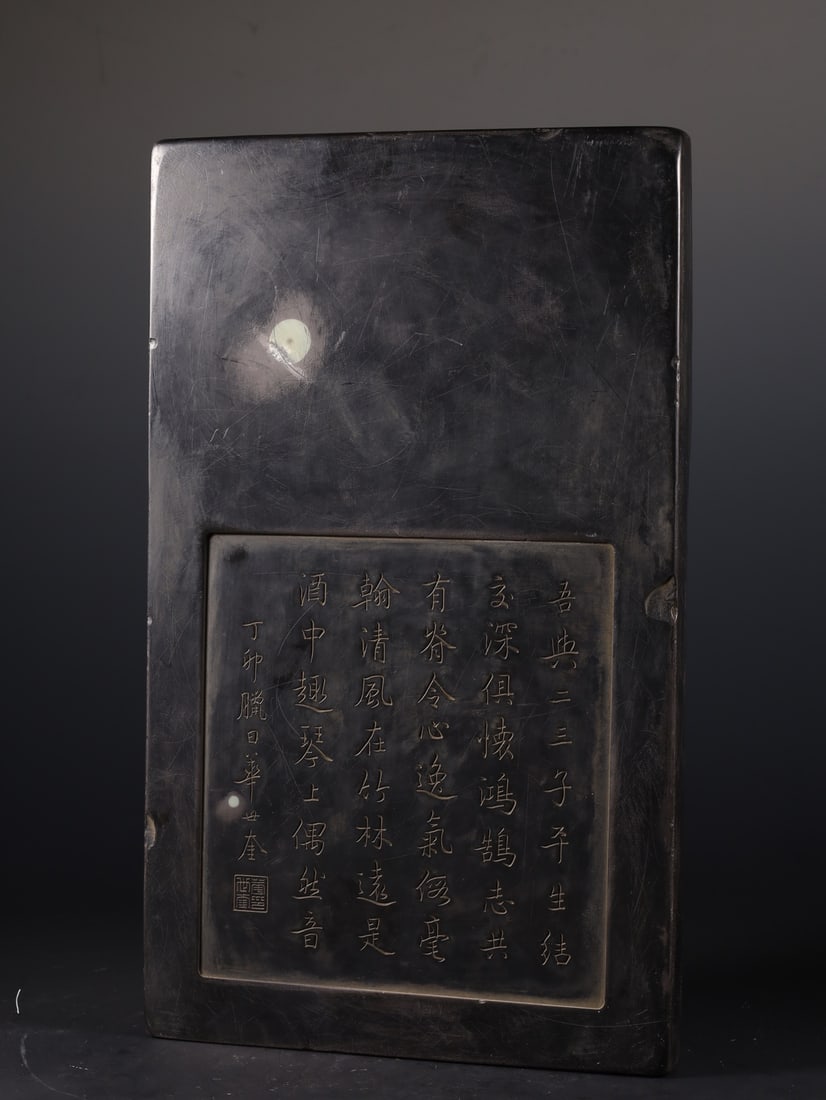 吾與二三子平生結
交深俱懷鴻鵠志共
有脊令心逸氣假毫
翰清風在竹林遠是
酒中趣琴上偶然音
丁卯臘日華世奎